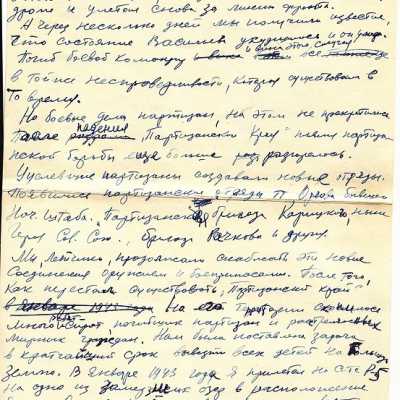 дроме и улетел снова за линию фронта.
А через несколько дней мы получили известие,
Что состояние Васильева ухудшилось и он умер.
Погиб боевой командир и вина этого случая все
в той несправедливости, которая существовала в
То время.
Но боевые дела партизан, на этом не прекратились
После падения "Партизанского Края" пламя партизан
ской борьбы еще больше разгоралось.
Уцелевшие партизаны создавали новые отряды.
Появились партизанские отряды Орлова бывшего
Нач. штаба, Партизанской бригады Карицкого, ныне
Героя Сов. Союза, бригада Рачкова и других.
Мы Летчики, продолжали снабжать эти новые
Соединения оружием и боеприпасами. После того,
Как перестал существовать, "Партизанский край"
в январе 1943 года на его территории скопилось
много сирот, погибших партизан и расстрелянных
мирных граждан. Нам была поставлена задача
в кратчайший срок вывезти всех детей на Большую
Землю. В Январе 1943 года я прилетел на С-те Р-5
на одно из замерзших озер в расположение